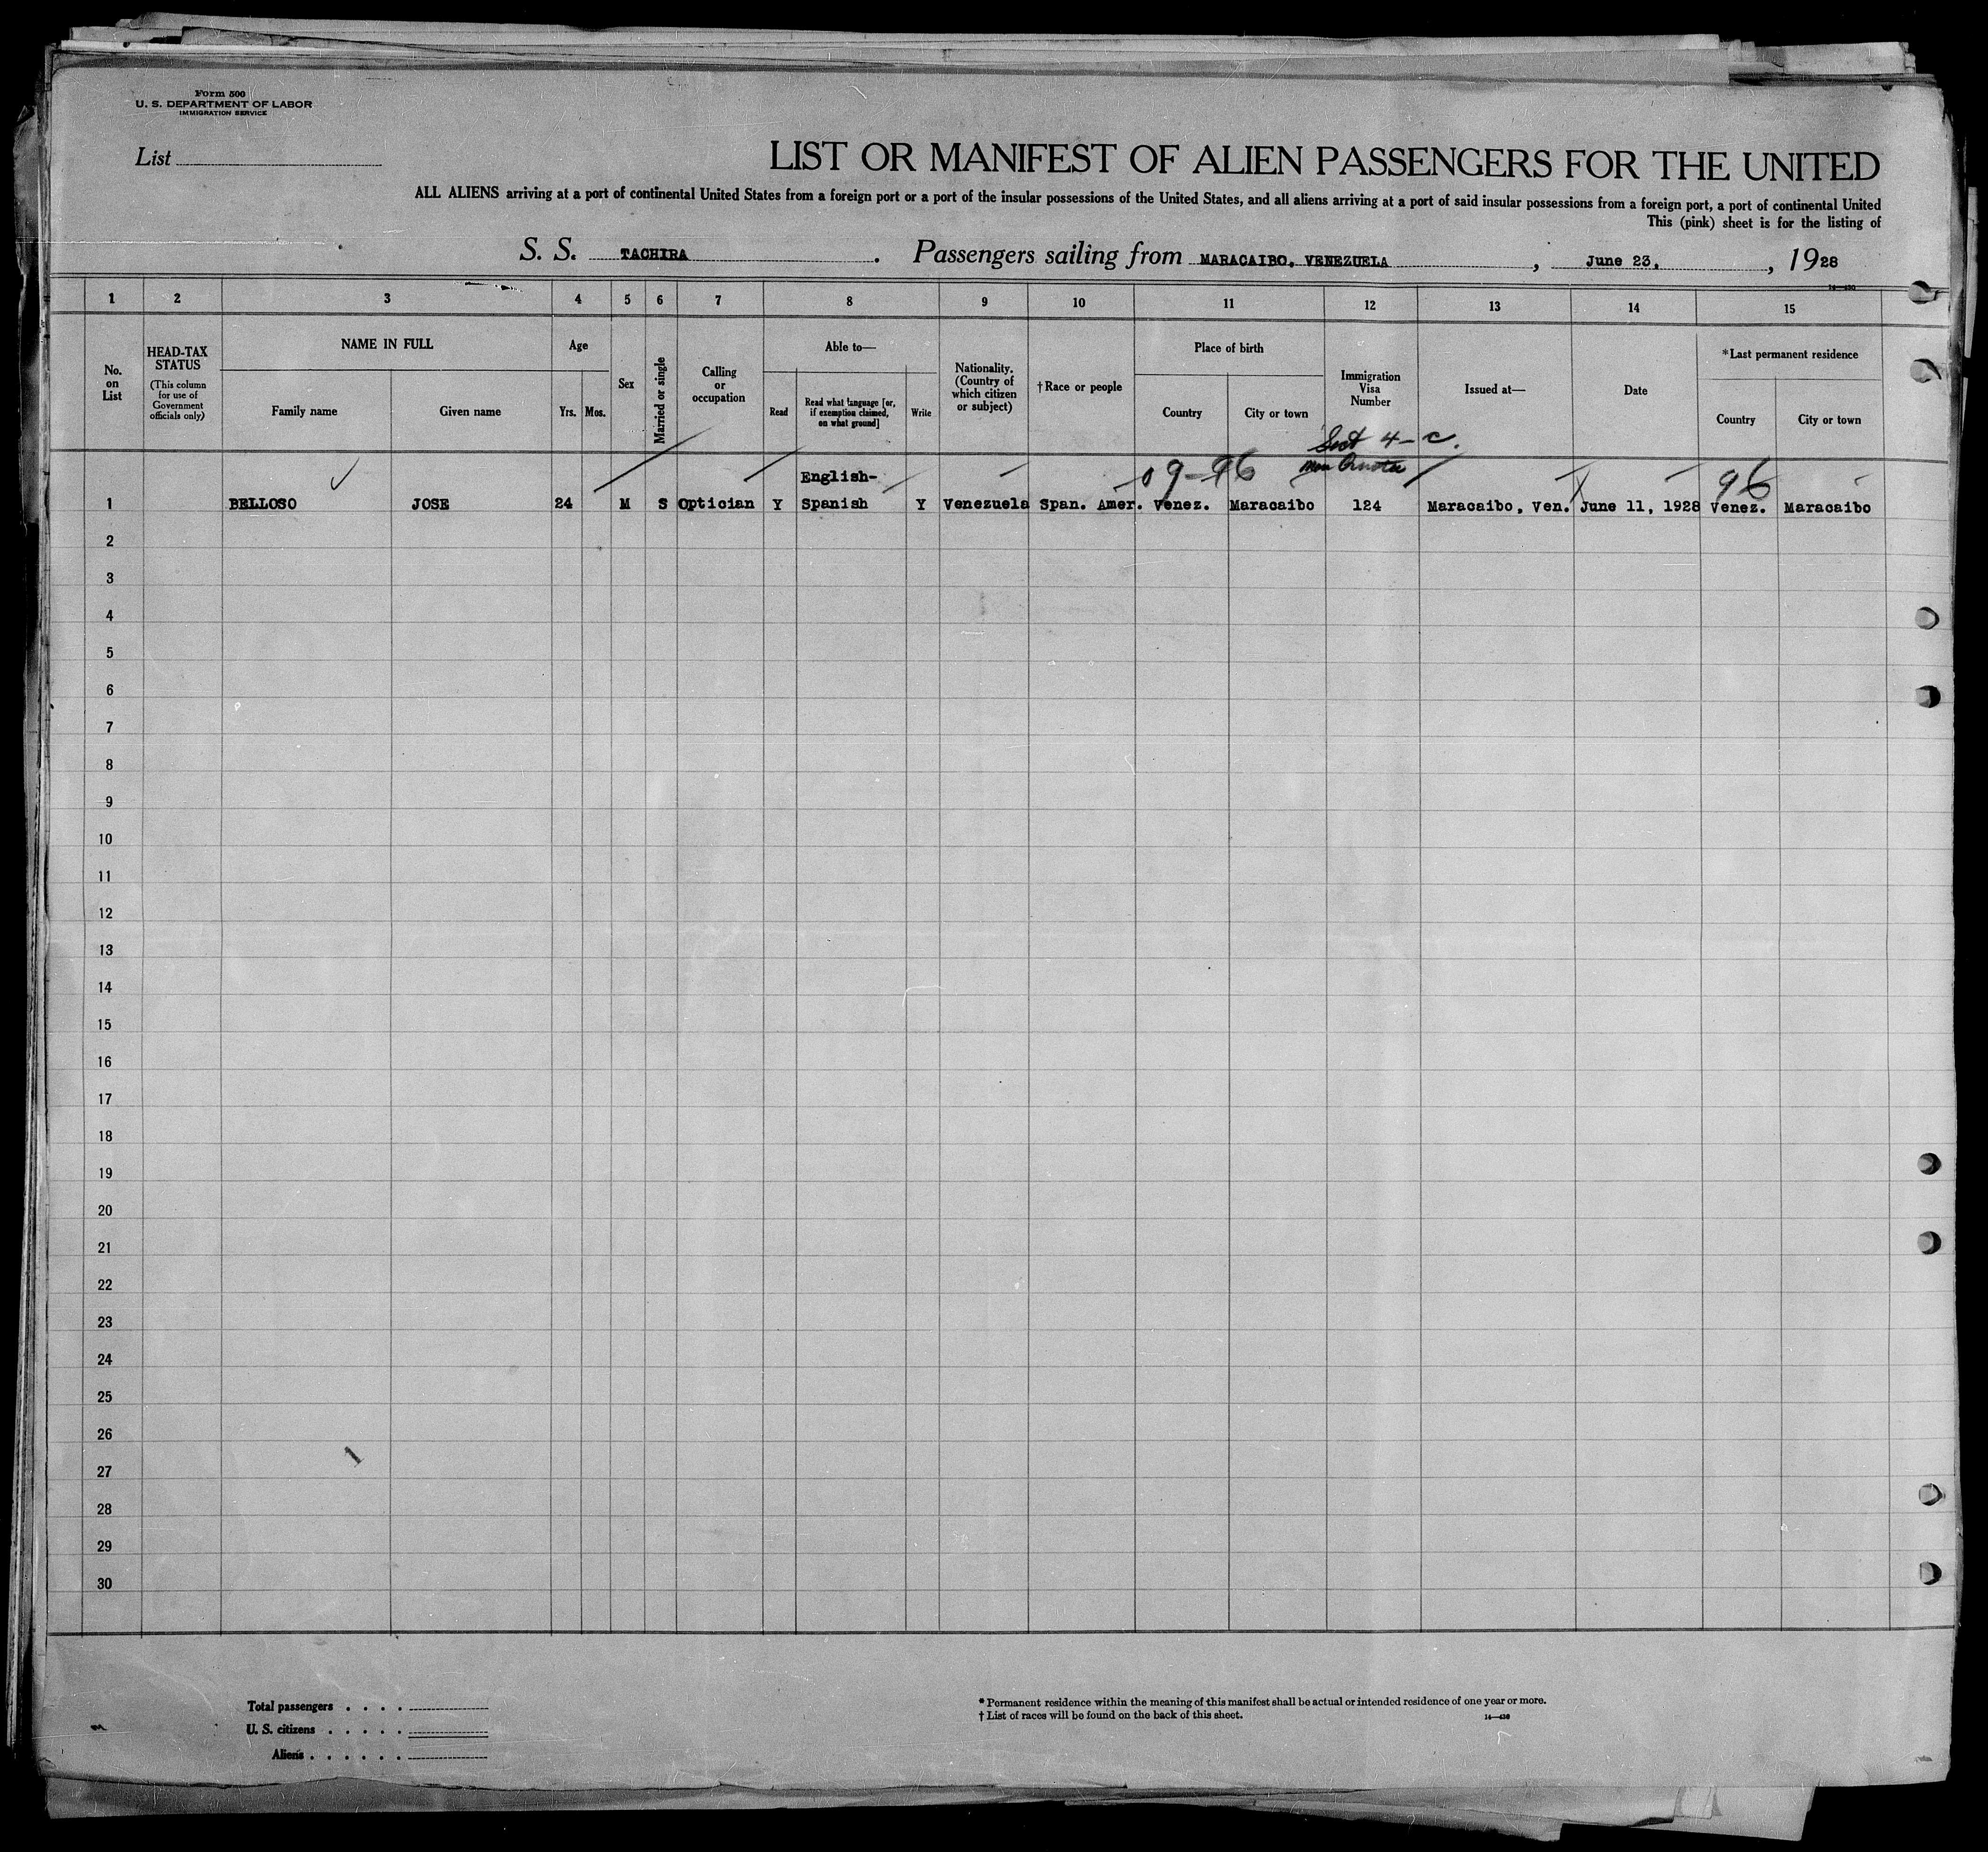 Form 500
U. S. DEPARTMENT OF LABOR
IMMIGRATION SERVICE
List
LIST OR MANIFEST OF ALIEN PASSENGERS FOR THE UNITED
ALL ALIENS arriving at a port of continental United States from a foreign port or a port of the insular possessions of the United States, and all aliens arriving at a port of said insular possessions from a foreign port, a port of continental United
This (pink) sheet is for the listing of
S. S. TACHIRA. Passengers sailing from MARACAIBO, VENEZUELA, June 23, , 1928
1 2 3 4 5 6 7 8 9 10 11 12 13 14 15
No. on List
HEAD-TAX STATUS
(This column for use of Government officials only)
NAME IN FULL
Family name Given name
Age
Yrs. Mos.
Sex
Married or single
Calling or occupation
Able to—
Read
Read what language [or, if exemption claimed, on what ground]
Write
Nationality. (Country of which citizen or subject)
†Race or people
Place of birth
Country City or town
Immigration Visa Number
Issued at—
Date
*Last permanent residence
Country City or town
Sect 4-c.
09-96
96
English-
1 BELLOSO JOSE 24 M S Optician Y Spanish Y Venezuela Span. Amer. Venez. Maracaibo 124 Maracaibo, Ven. June 11, 1928 Venez. Maracaibo
2
3
4
5
6
7
8
9
10
11
12
13
14
15
16
17
18
19
20
21
22
23
24
25
26
27
28
29
30
Total passengers
U. S. citizens
Aliens
* Permanent residence within the meaning of this manifest shall be actual or intended residence of one year or more.
† List of races will be found on the back of this sheet.